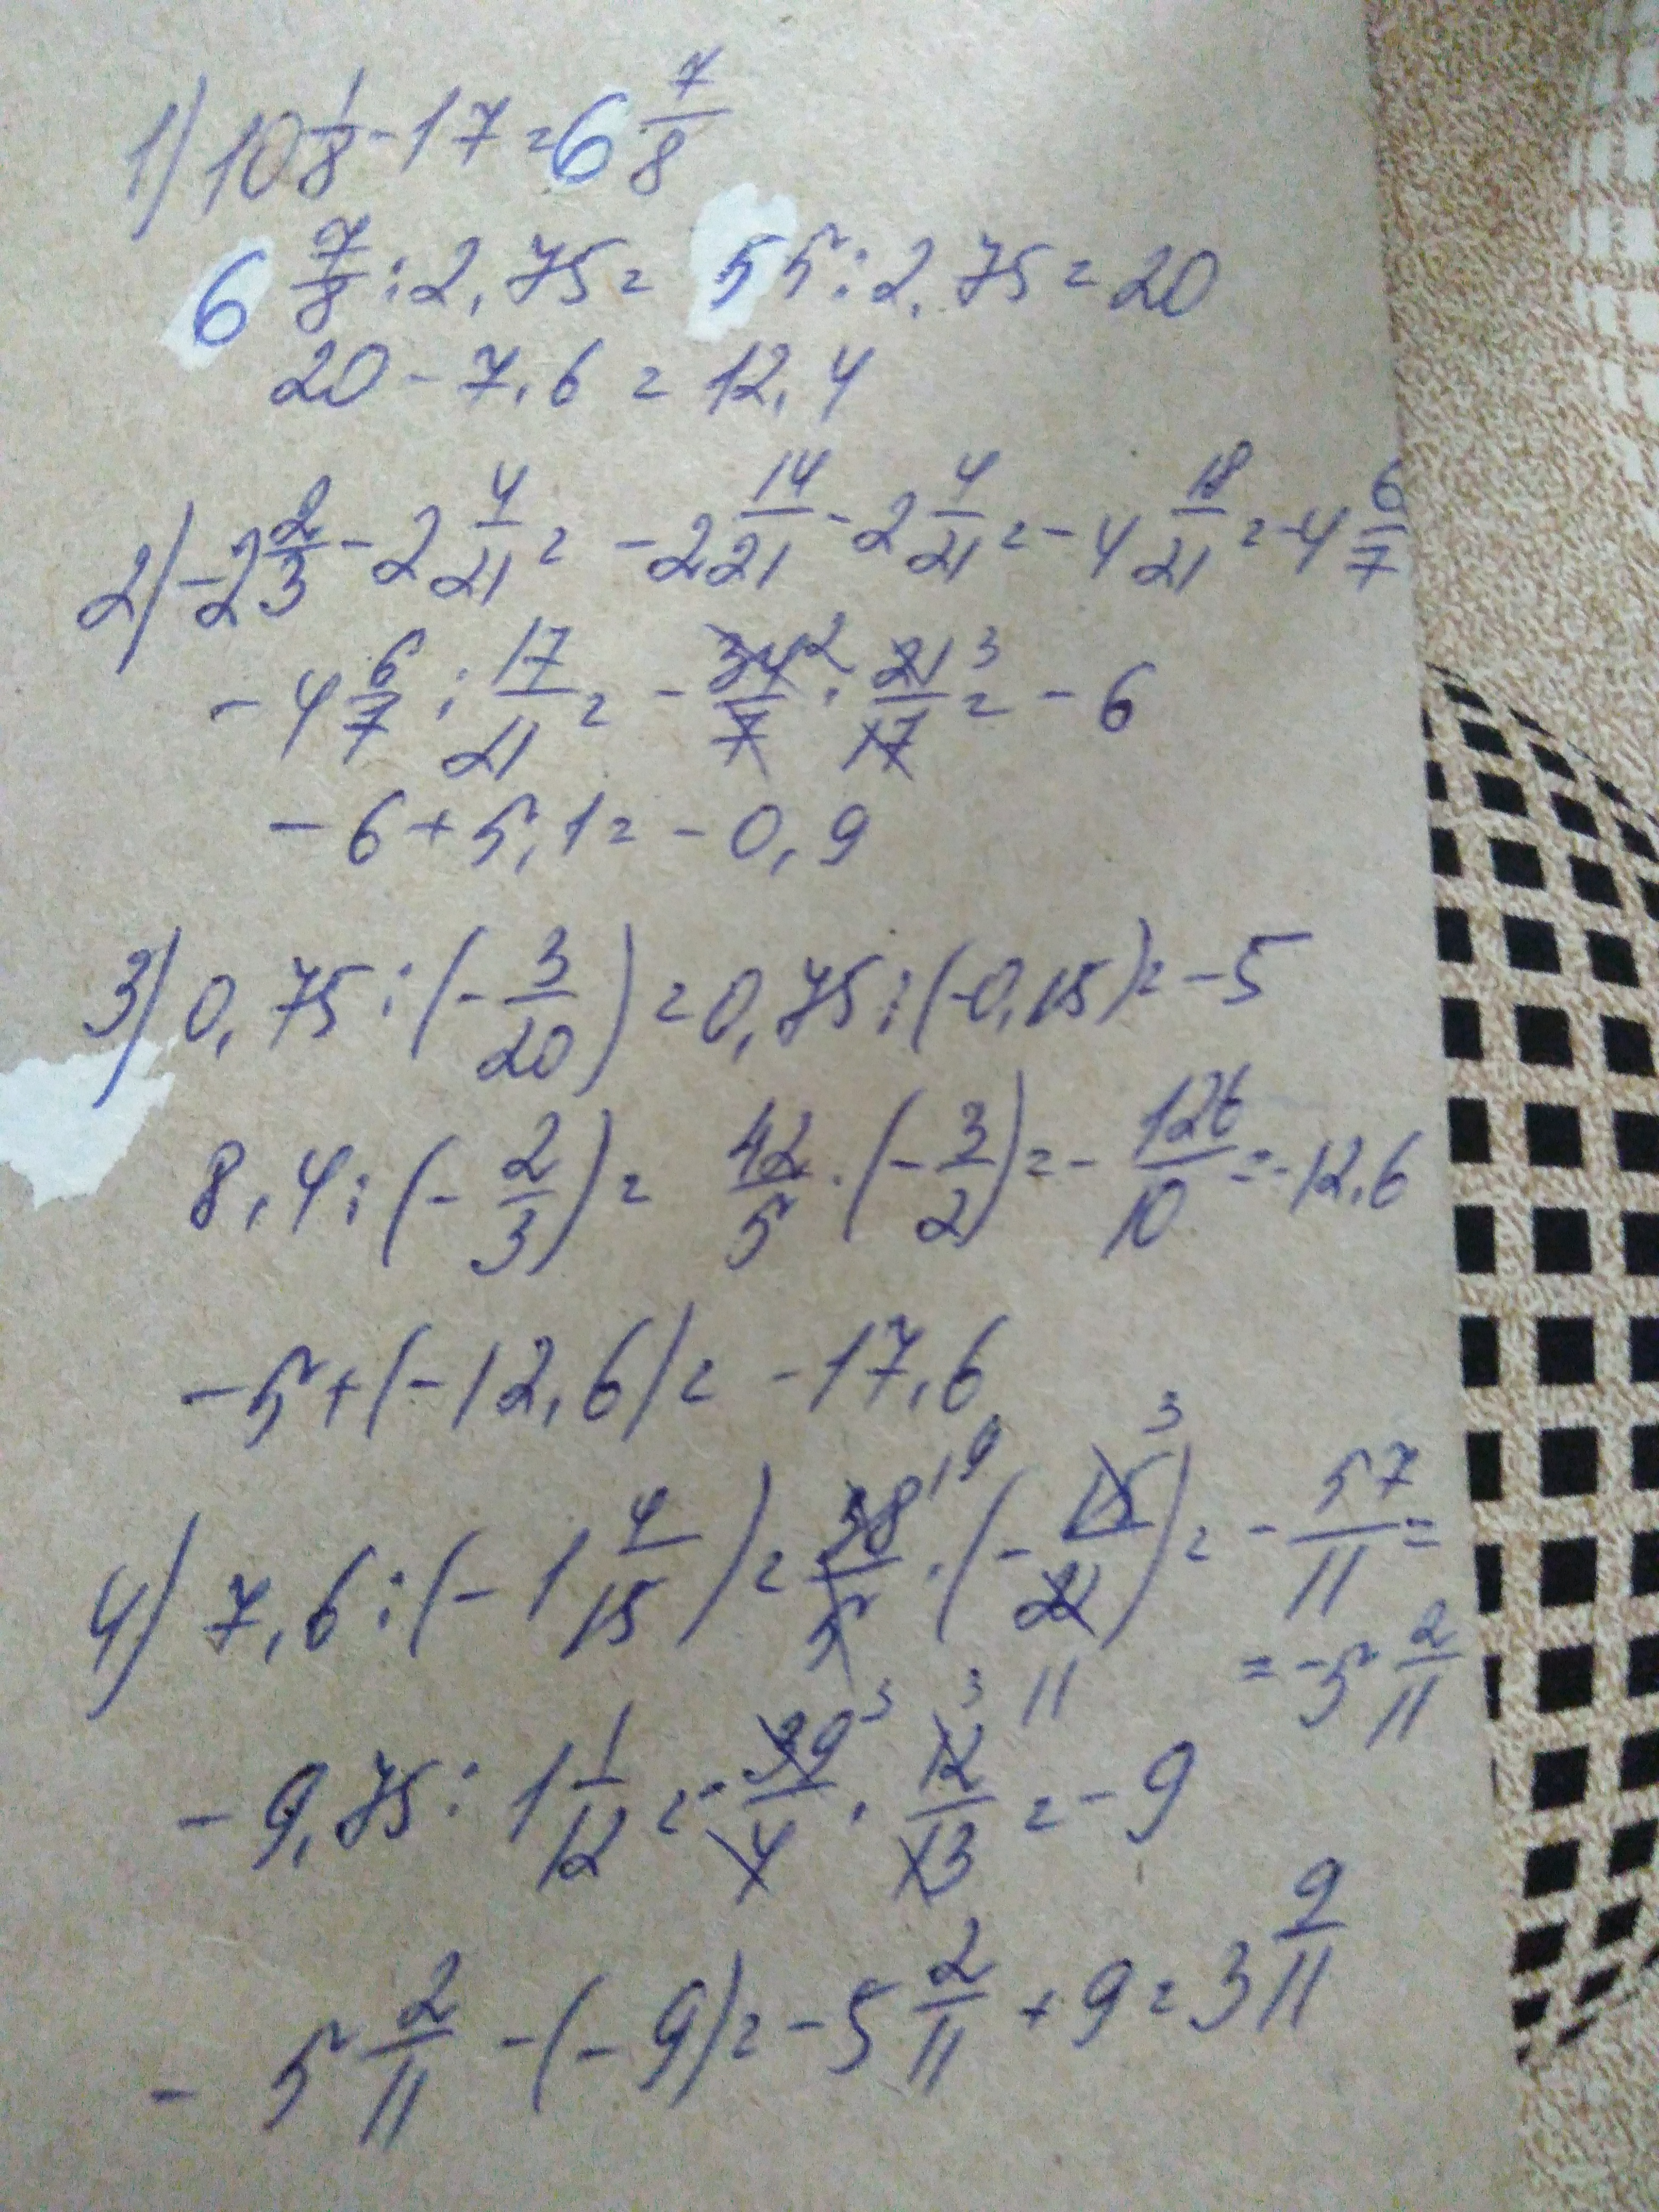 1) 10 1/8 - 17 = 6 7/8
6 7/8 : 2,75 = 55 : 2,75 = 20
20 - 7,6 = 12,4
2) -2 2/3 - 2 4/21 = -2 14/21 - 2 4/21 = -4 18/21 = -4 6/7
-4 6/7 : 17/21 = - 34/7 2 · 21/17 3 = -6
-6 + 5,1 = -0,9
3) 0,75 : (- 3/20) = 0,75 : (-0,15) = -5
8,4 : (- 2/3) = 42/5 · (- 3/2) = - 126/10 = -12,6
-5 + (-12,6) = -17,6
4) 7,6 : (-1 4/15) = 38/5 19 · (- 15/22 3 11) = - 57/11 =
= -5 2/11
-9,75 : 1 1/12 = - 39/4 3 · 12/13 3 = -9
-5 2/11 - (-9) = -5 2/11 + 9 = 3 9/11